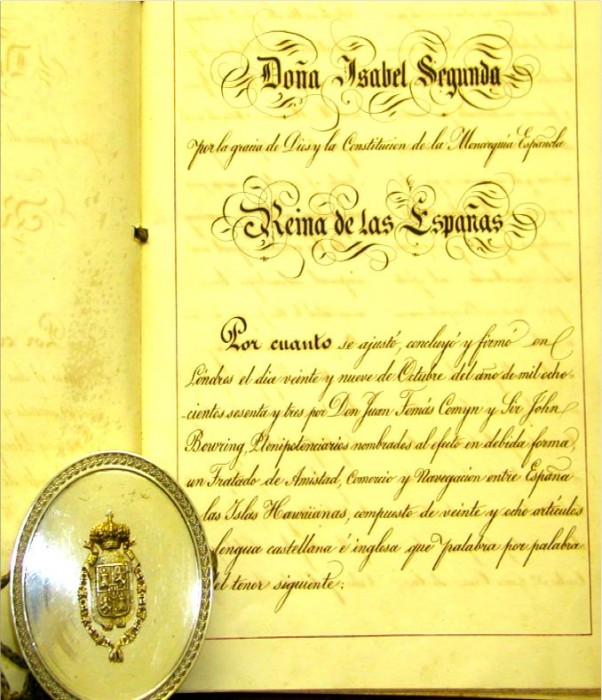 Doña Isabel Segunda
por la gracia de Dios y la Constitucion de la Monarquía Española
Reina de las Españas
Por cuanto se ajustó, concluyó y firmó en
Lóndres el dia veinte y nueve de Octubre del año de mil ocho-
-cientos sesenta y tres por Don Juan Tomás Comyn y Sir John
Bowring, Plenipotenciarios nombrados al efecto en debida forma,
un Tratado de Amistad, Comercio y Navegacion entre España
las Islas Hawaiianas, compuesto de veinte y ocho artículos
lengua castellana é inglesa que palabra por palabra
del tenor siguiente: